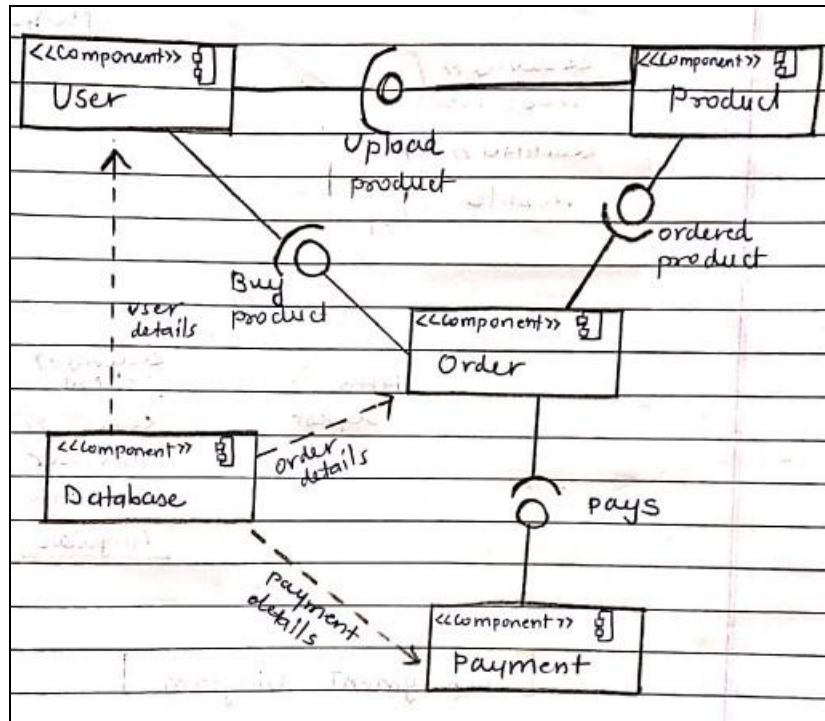 <<component>>
User
<<component>>
product
Upload
product
ordered
product
Buy
product
user
details
<<component>>
Order
<<component>>
Database
order
details
pays
payment
details
<<component>>
payment